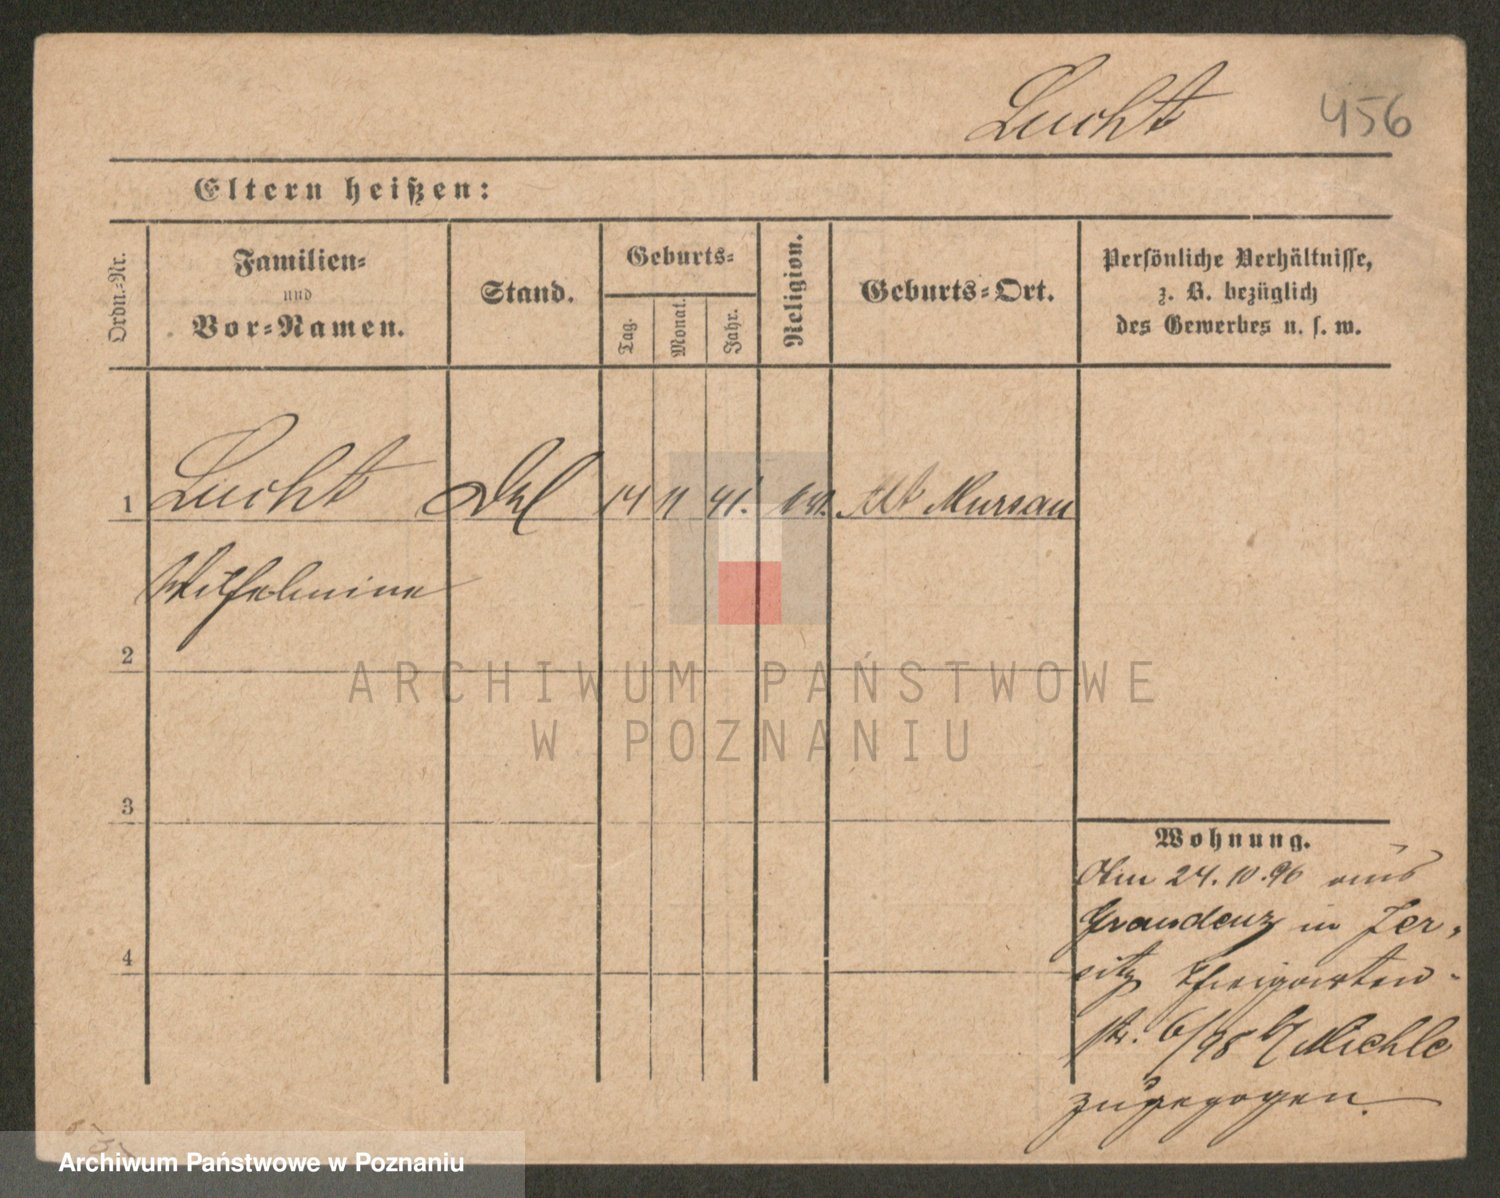 Lucht 456
Eltern heißen:
Ordn.-Nr.
Familien-
und
Vor-Namen.
Stand.
Geburts-
Tag.
Monat.
Jahr.
Religion.
Geburts-Ort.
Persönliche Verhältnisse,
z. B. bezüglich
des Gewerbes u. s. w.
1 Lucht 14 11 41. ev. Alt Mursau
Wilhelmine
2
ARCHIWUM PAŃSTWOWE
W POZNANIU
3
Wohnung.
Am 24.10.96 aus
Graudenz in Jer-
sitz
str. 6/98 b/ Michle
zugezogen.
4
Archiwum Państwowe w Poznaniu